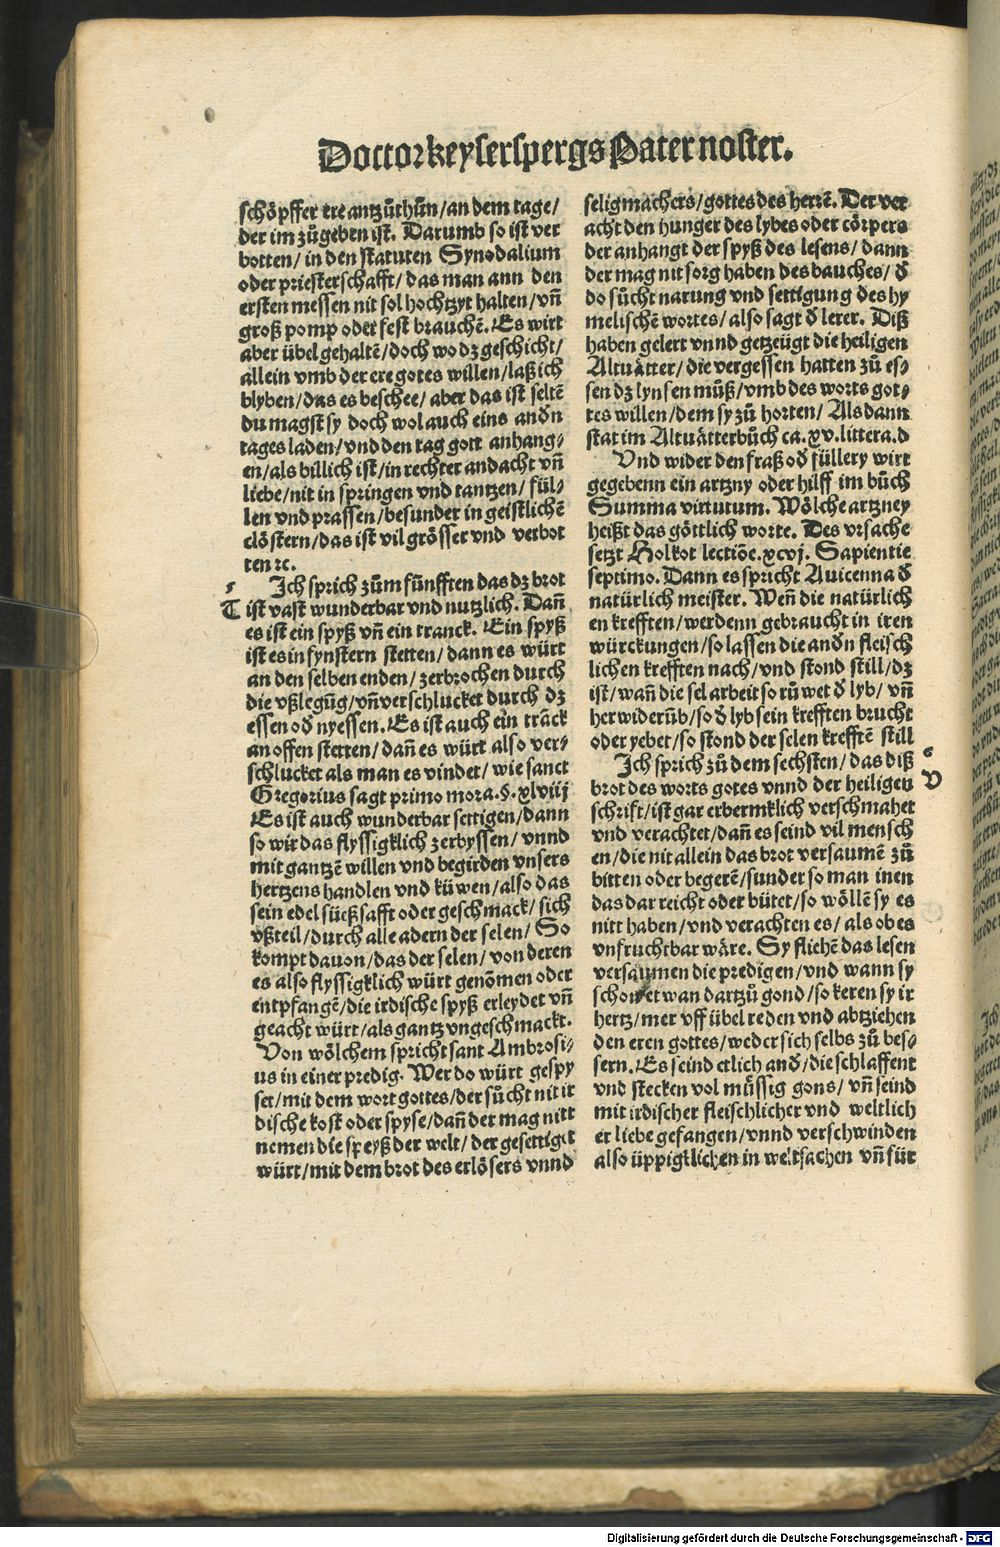 Doctor keyserspergs Pater noster.
schöpffer ere antzůthůn/an dem tage/
der im zůgeben ist. Darumb so ist ver
botten/in den statuten Synodalium
oder priesterschafft/das man ann den
ersten messen nit sol hochtzyt halten/vñ
groß pomp oder fest brauchē. Es wirt
aber übel gehaltē/doch wo dz geschicht/
allein vmb der ere gotes willen/laß ich
blyben/das es beschee/aber das ist seltē
du magst sy doch wol auch eins andn
tages laden/vnd den tag gott anhang⸗
en/als billich ist/in rechter andacht vñ
liebe/nit in springen vnd tantzen/fül⸗
len vnd prassen/besunder in geistlichē
clöstern/das ist vil grösser vnd verbot
ten ꝛc.
5
T
Ich sprich zům fünfften das dz brot
ist vast wunderbar vnd nutzlich. Dañ
es ist ein spyß vñ ein tranck. Ein spyß
ist es in fynstern stetten/dann es würt
an den selben enden/zerbrochen durch
die vßlegūg/vñ verschlucket durch dz
essen od nyessen. Es ist auch ein trāck
an offen stetten/dañ es würt also ver⸗
schlucket als man es vindet/wie sanct
Gregorius sagt primo mora. §. xlviij
Es ist auch wunderbar settigen/dann
so wir das flyssigklich zerbyssen/vnnd
mit gantzē willen vnd begirden vnsers
hertzens handlen vnd küwen/also das
sein edel süeß safft oder geschmack/sich
vßteil/durch alle adern der selen/So
kompt dauon/das der selen/von deren
es also flyssigklich würt genōmen oder
entpfangē/die irdische spyß erleydet vñ
geacht würt/als gantz vngeschmackt.
Von wölchem spricht sant Ambrosi⸗
us in einer predig. Wer do würt gespy
set/mit dem wort gottes/der sůcht nit ir
dische kost oder spyse/dañ der mag nitt
nemen die speyß der welt/der gesettiget
würt/mit dem brot des erlösers vnnd
seligmachers/gottes des herrē. Der ver
acht den hunger des lybes oder cörpers
der anhangt der spyß des lesens/dann
der mag nit sorg haben des bauches/đ
do sůcht narung vnd settigung des hy
melischē wortes/also sagt đ lerer. Diß
haben gelert vnnd getzeügt die heiligen
Altuätter/die vergessen hatten zů es⸗
sen dz lynsen můß/vmb des worts got⸗
tes willen/dem sy zů horten/Als dann
stat im Altuätterbůch ca. xv. littera. d
Vnd wider den fraß ođ füllery wirt
gegebenn ein artzny oder hilff im bůch
Summa virtutum. Wölche artzney
heißt das göttlich worte. Des vrsache
setzt Holkot lectiōe. xcvj. Sapientie
septimo. Dann es spricht Auicenna đ
natürlich meister. Weñ die natürlich
en krefften/werdenn gebraucht in iren
würckungen/so lassen die andn fleisch
lichen krefften nach/vnd stond still/dz
ist/wañ die sel arbeit so růwet đ lyb/vñ
herwiderūb/so đ lyb sein krefften brucht
oder yebet/so stond der selen krefftē still
6
V
Ich sprich zů dem sechsten/das diß
brot des worts gotes vnnd der heiligen
schrift/ist gar erbermklich verschmahet
vnd verachtet/dañ es seind vil mensch
en/die nit allein das brot versaumē zů
bitten oder begerē/sunder so man inen
das dar reicht oder bütet/so wöllē sy es
nitt haben/vnd verachten es/als ob es
vnfruchtbar wäre. Sy fliehē das lesen
versaumen die predigen/vnd wann sy
schon etwan dartzů gond/so keren sy ir
hertz/mer vff übel reden vnd abtziehen
den eren gottes/weder sich selbs zů bes⸗
sern. Es seind etlich anđ/die schlaffent
vnd stecken vol müssig gons/vñ seind
mit irdischer fleischlicher vnd weltlich
er liebe gefangen/vnnd verschwinden
also üppigklichen in weltsachen vñ für
Digitalisierung gefördert durch die Deutsche Forschungsgemeinschaft - DFG